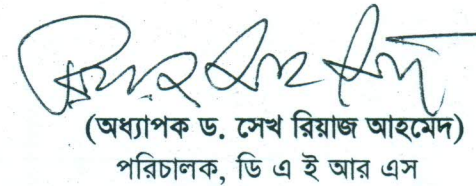 (অধ্যাপক ড. সেখ রিয়াজ আহমেদ)
পরিচালক, ডি এ ই আর এস